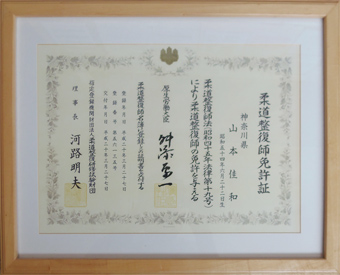 柔道整復師免許証
神奈川県
山本佳和
昭和五十四年六月二十二日生
柔道整復師法(昭和四十五年法律第十九号)
により柔道整復師の免許を与える
厚生労働大臣 舛添要一
柔道整復師名簿に登録した証書を交付する
指定登録機関財団法人柔道整復研修試験財団
理事長 河路明夫